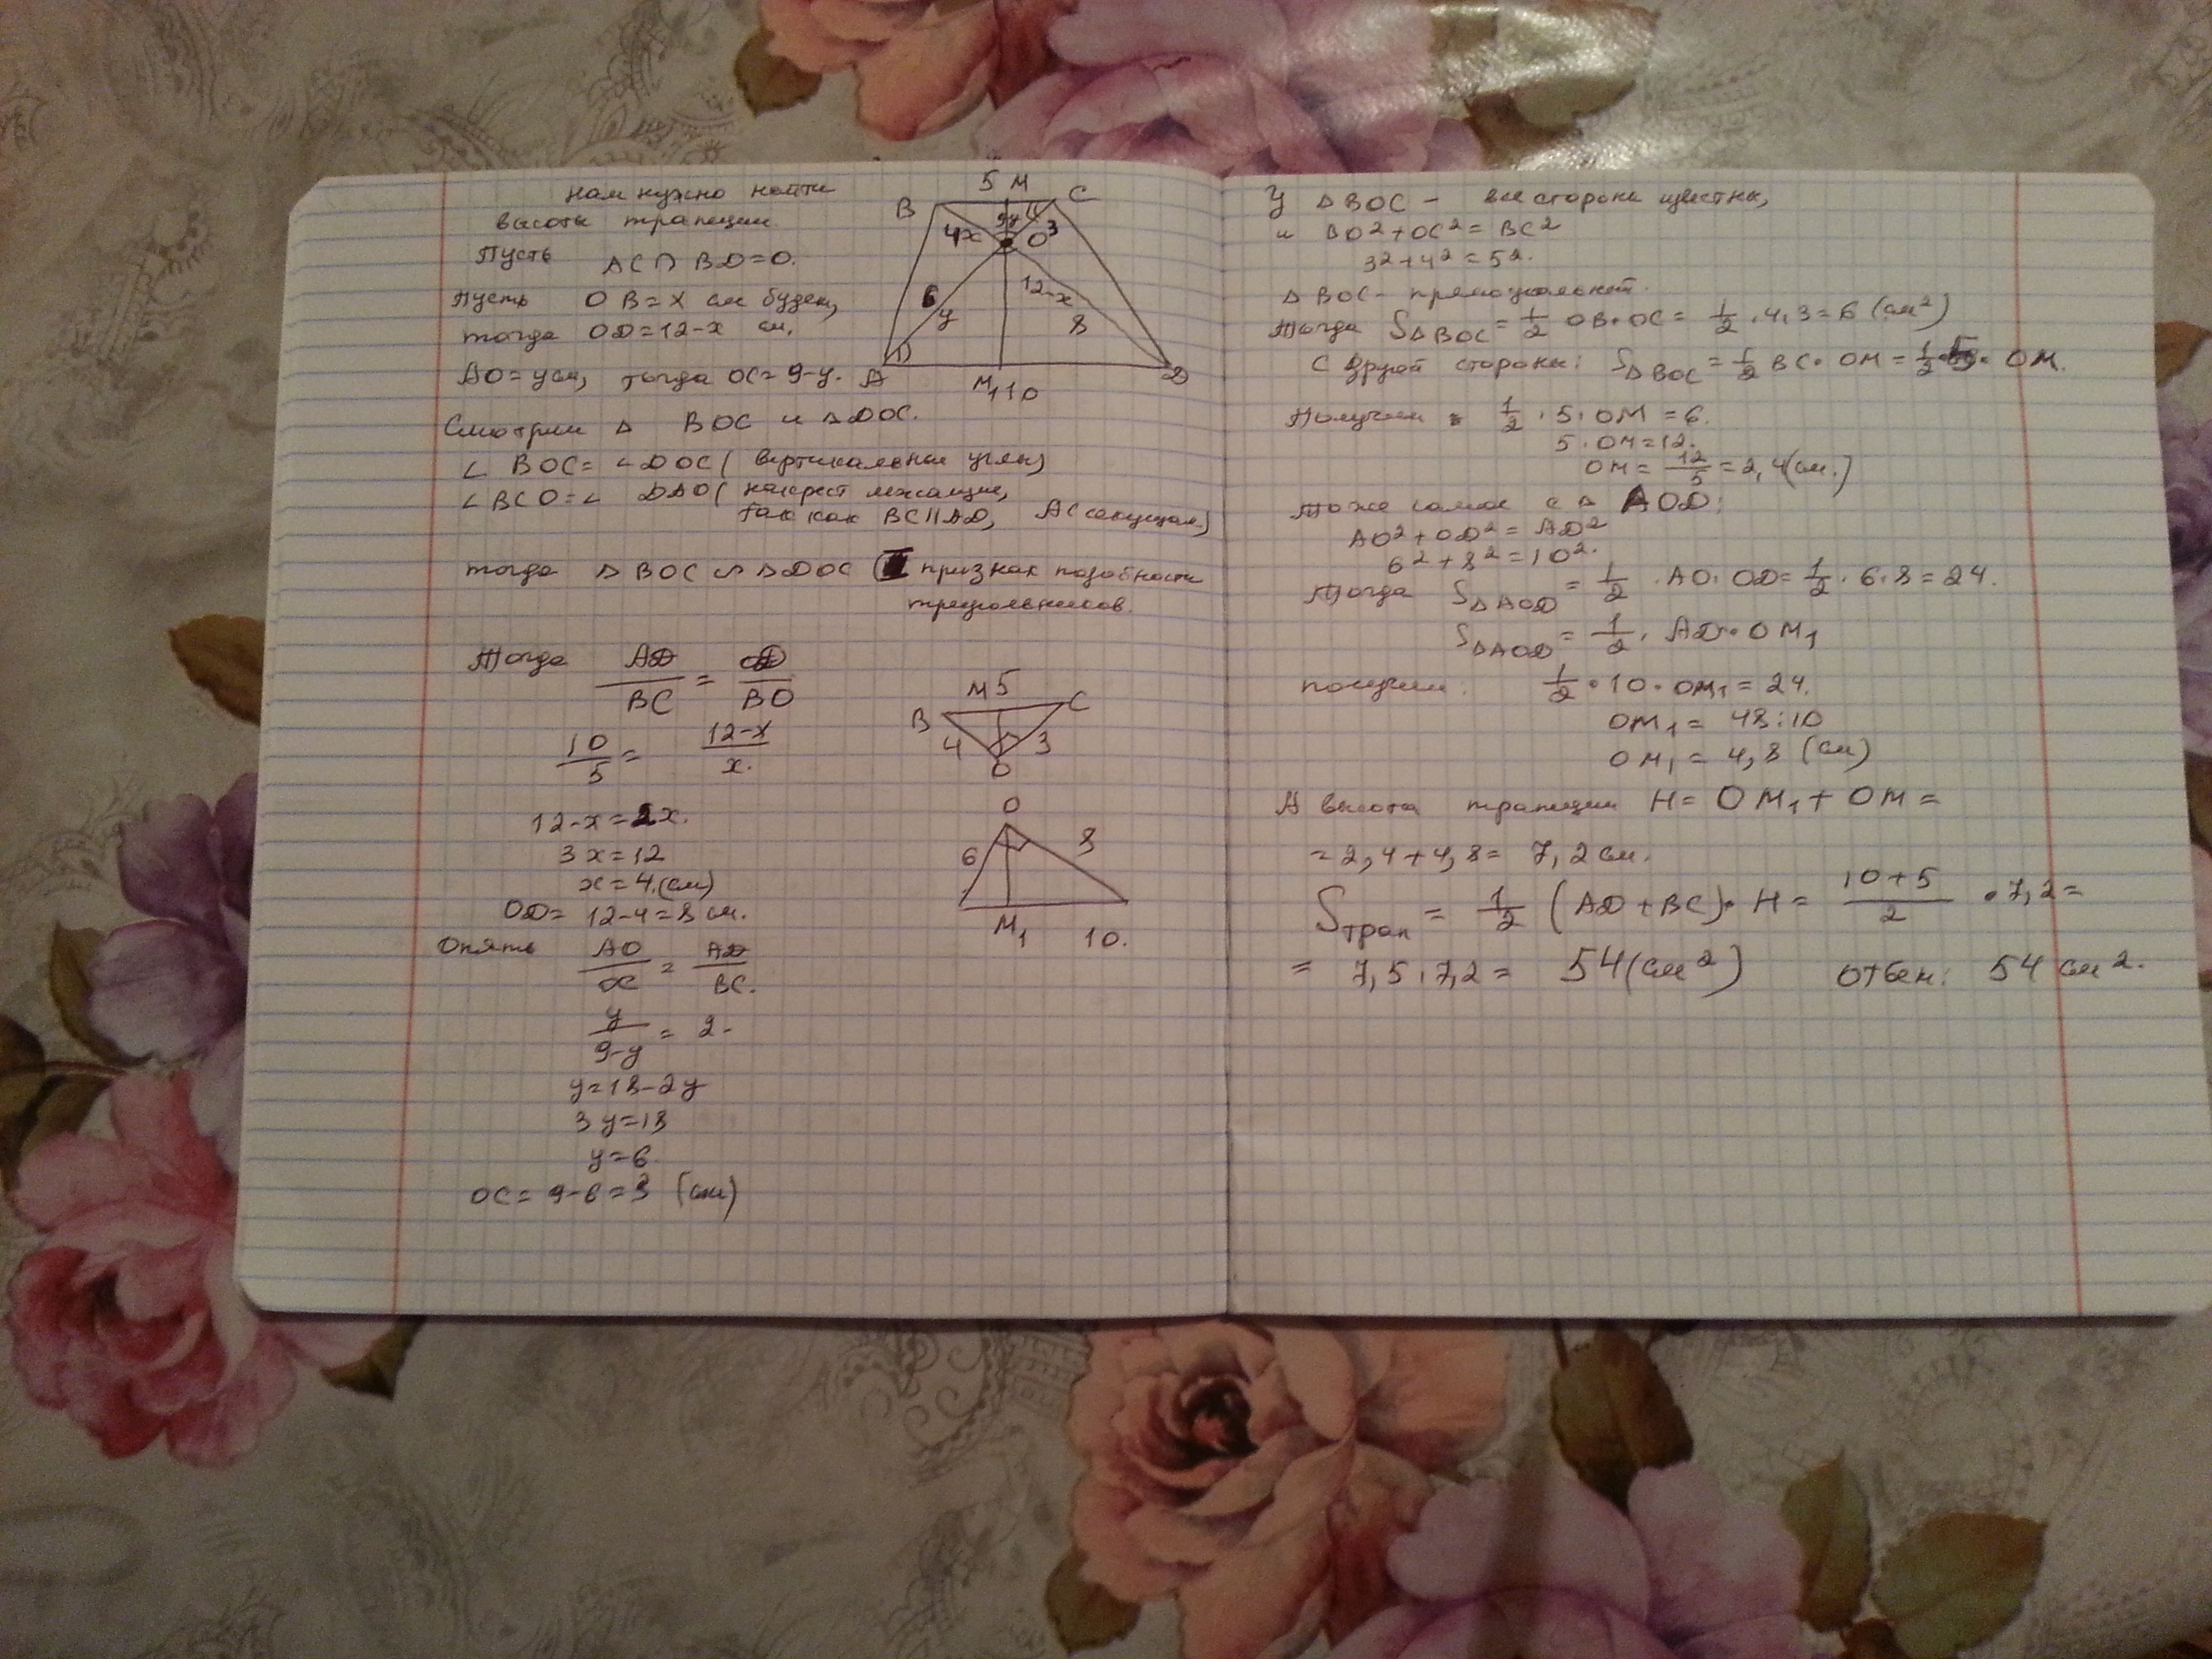 Нам нужно найти
высоты трапеции.
Пусть AC∩BD=O.
Пусть OB=x см будет,
тогда OD=12-x см.
AO=y см, тогда OC=9-y.
Смотрим △ BOC и △DOC.
∠ BOC=∠DOC (вертикальные углы)
∠BCO=∠ DAO (накрест лежащие,
так как BC||AD, AC секущая)
тогда △BOC ∽ △DOC (I признак подобности
треугольников.
Тогда AD/BC = OD/BO
10/5 = 12-x/x.
12-x=2x.
3x=12
x=4.(см)
OD= 12-4=8 см.
Опять AO/OC = AD/BC.
y/9-y = 2.
y=18-2y
3y=18
y=6.
OC= 9-6=3 (см)
5 M
B C
4x 9-y O 3
6 12-x
y 8
A M₁ 10 D
M 5
B C
4 3
O
O
6 8
M₁ 10.
У △BOC - все стороны известны,
и BO²+OC²=BC²
3²+4²=5².
△BOC- прямоугольный.
Тогда S△BOC = 1/2 OB·OC = 1/2 ·4·3=6 (см²)
С другой стороны: S△BOC = 1/2 BC·OM = 1/2·5·OM.
Получим 1/2 ·5·OM=6.
5·OM=12.
OM= 12/5 =2,4(см.)
Тоже самое с △ AOD:
AO²+OD²=AD²
6²+8²=10².
Тогда S△AOD = 1/2 ·AO·OD= 1/2 ·6·8=24.
S△AOD = 1/2 · AD·OM₁
получим: 1/2 ·10·OM₁=24.
OM₁= 48:10
OM₁= 4,8 (см)
А высота трапеции H= OM₁+OM=
=2,4+4,8= 7,2 см.
Sтрап = 1/2 (AD+BC)·H= 10+5/2 ·7,2=
= 7,5·7,2= 54(см²) Ответ: 54 см².